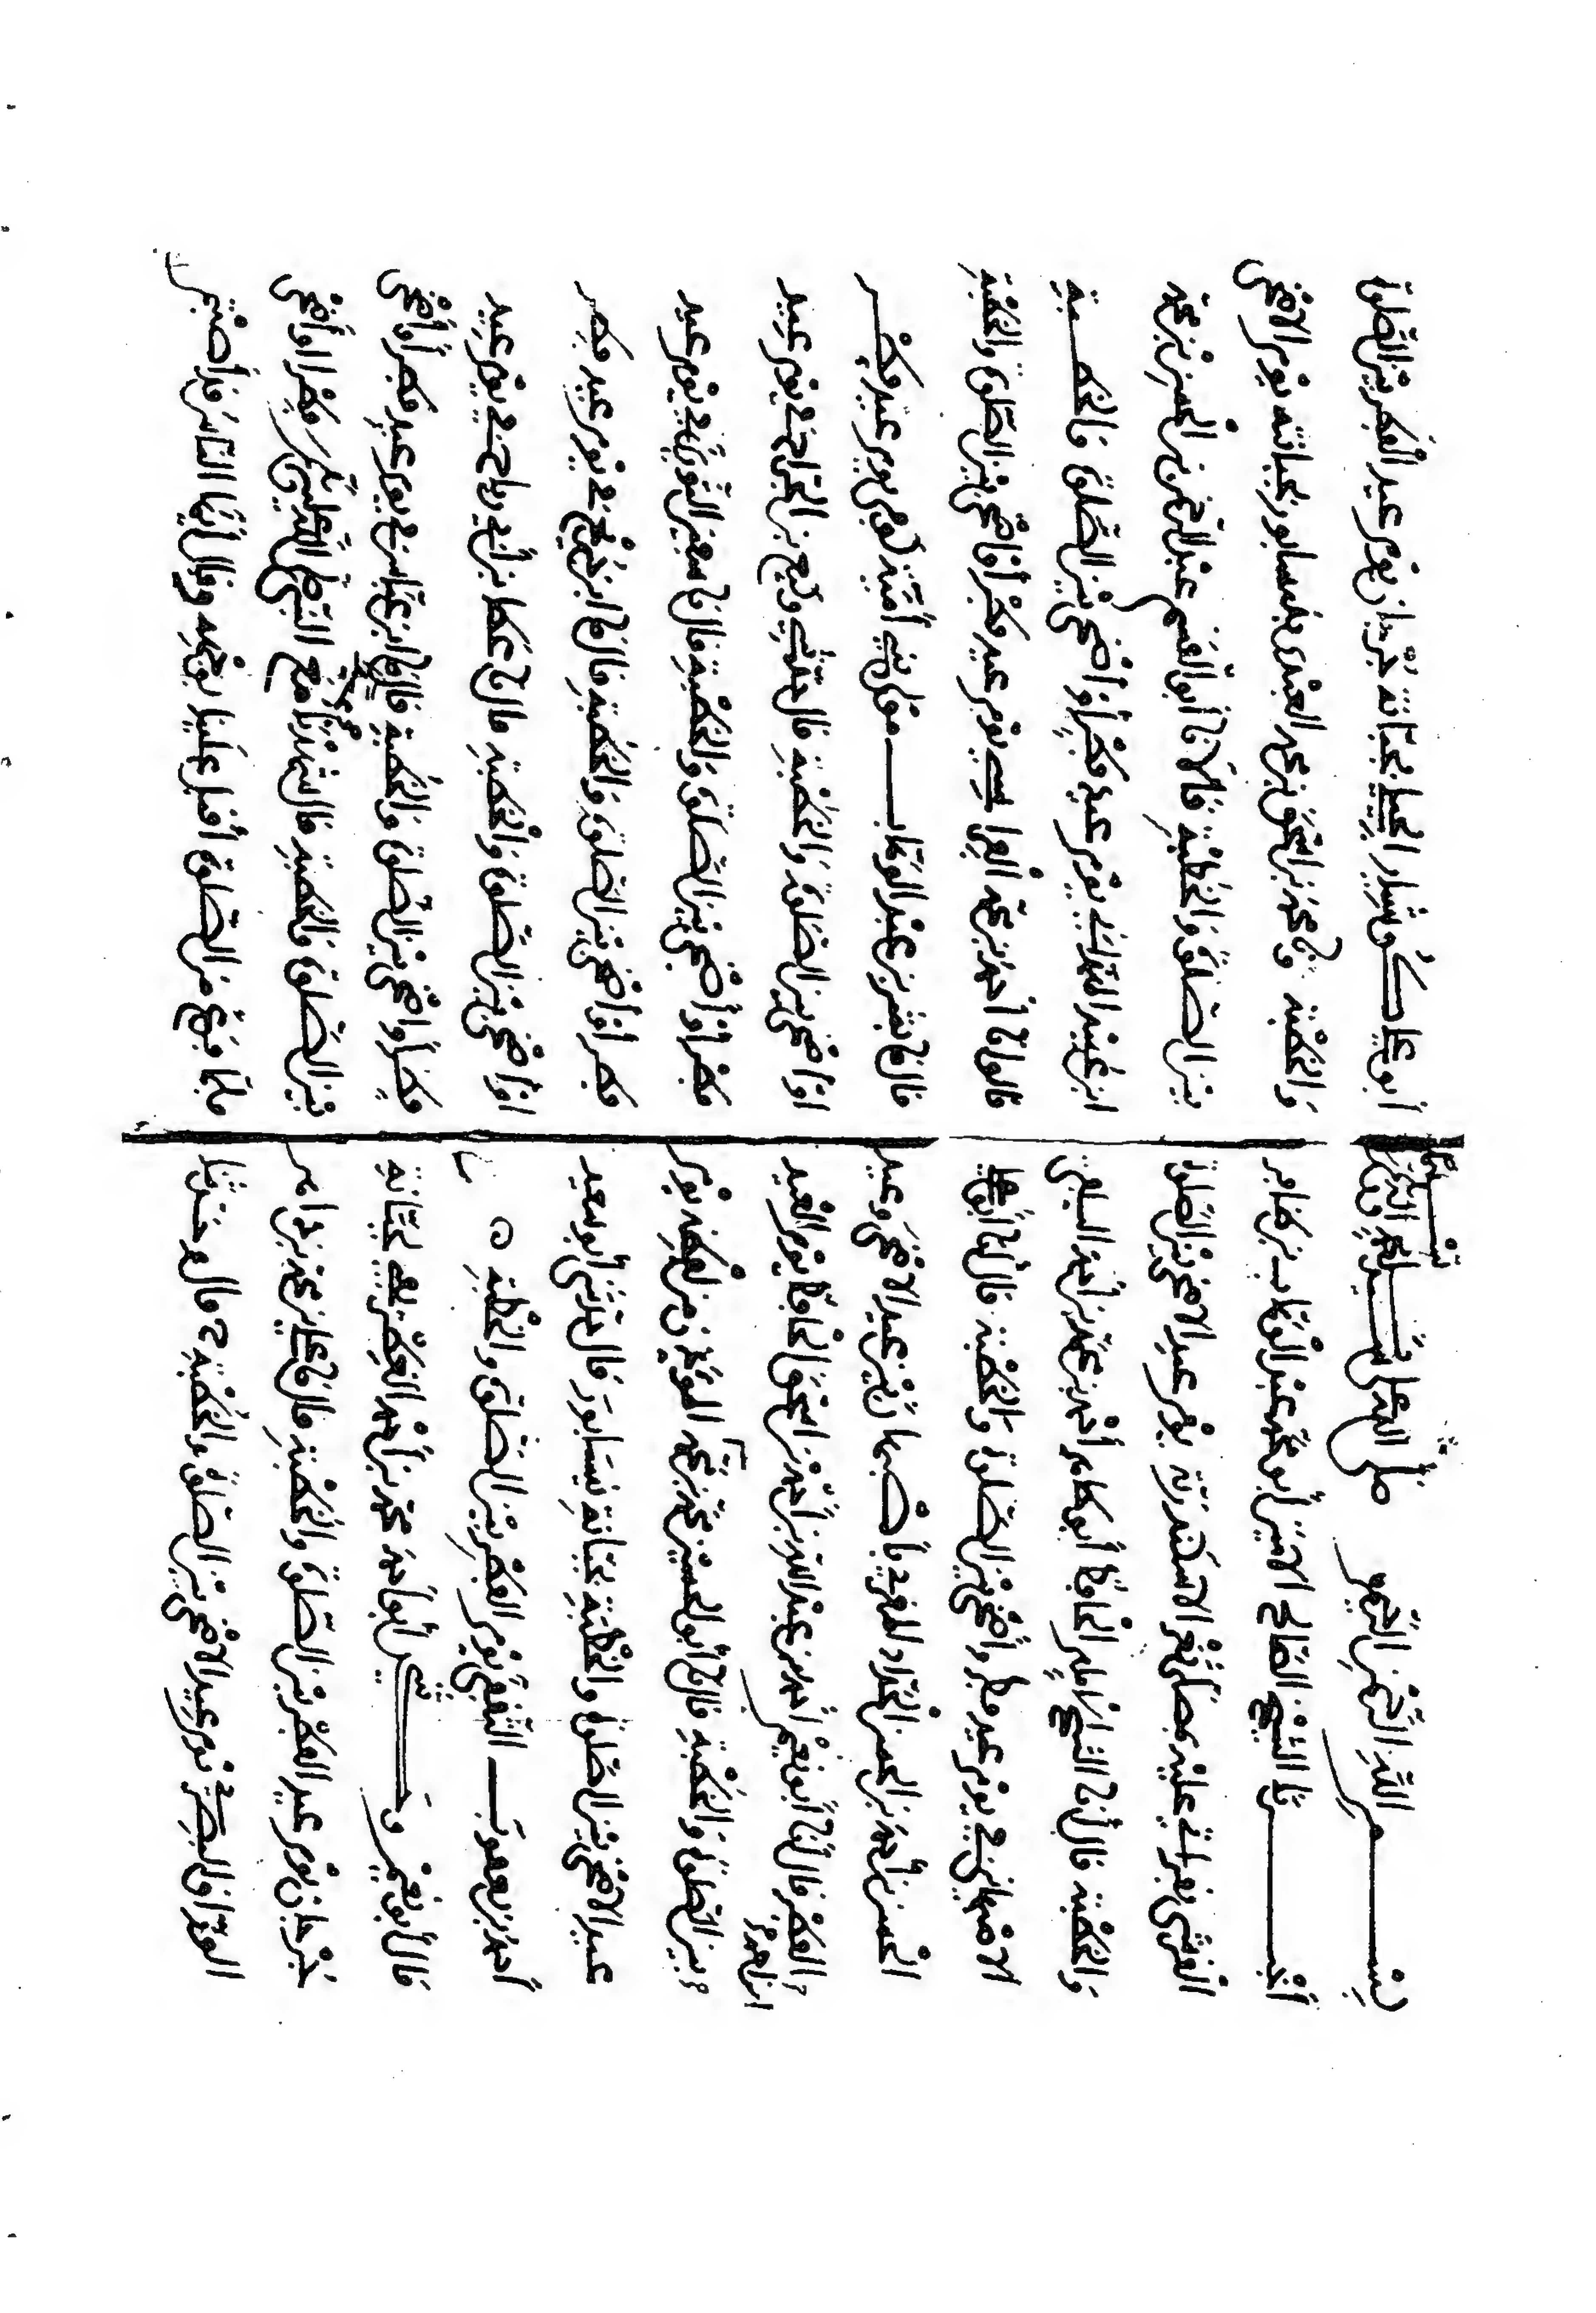 بسم الله الرحمن الرحيم صلى الله على سيدنا محمد
أخبرنا الشيخ الصالح الأمين أبو محمد عبد الوهاب بن ظافر
القرشي بقراءتي عليه بمصلى ثغر الاسكندرية يوم عيد الأضحى بين الصلوة
والخطبة قال أنا الشيخ الإمام الحافظ أبو طاهر أحمد بن محمد بن أحمد السلفي
الأصبهاني في يوم عيد فطر وأضحى بين الصلوة والخطبة قال أنا أبو علي
الحسن بن أحمد بن الحسن الحداد المقرئ بأصبهان بين عيد الأضحى وعيد
الفطر قال أنا أبو نعيم أحمد بن عبد الله بن أحمد بن إسحق الحافظ يوم العيد
بين الصلوة والخطبة قال نا أبو الحسين محمد بن محمد المؤذن من لفظه يوم
عيد الأضحى بين الصلوة والخطبة بجبانة نيسابور قال حدثني أبو سعيد
أحمد بن يعقوب الثقفي يوم الفطر بين الصلوة والخطبة
قال أبو نعيم وحدثني أبو أحمد محمد بن أحمد الغطريفي بجبانة
جرجان يوم عيد الفطر بين الصلوة والخطبة قال نا علي بن محمد بن داهر
الوراق البصري في يوم عيد الأضحى بين الصلوة والخطبة ح قال و حدثنا
أبو علي بجبانة جرجان يوم عيد الفطر بين الصلوة
والخطبة ونا محمد بن إسحق بن محمد العبدي بنيسابور بجبانته يوم الأضحى
بين الصلوة والخطبة قالا نا أبو القسم عبد الرحمن بن الحسن بن محمد
ابن عبيد الهمداني يوم عيد فطر أو أضحى بين الصلوة والخطبة
قالوا نا أحمد بن محمد في يوم عيد فطر أو أضحى بين الصلوة والخطبة
قال نا بشر بن عبد الوهاب مولى بني أمية في يوم عيد فطر
أو أضحى بين الصلوة والخطبة قال حدثني وكيع بن الجراح في يوم عيد
فطر أو أضحى بين الصلوة والخطبة قال نا سفين الثوري في يوم عيد
فطر أو أضحى بين الصلوة والخطبة قال نا ابن جريج في يوم عيد فطر
أو أضحى بين الصلوة والخطبة قال نا عطا بن أبي رباح في يوم عيد
فطر أو أضحى بين الصلوة والخطبة قال نا ابن عباس في يوم عيد فطر أو أضحى
بين الصلوة والخطبة قال شهدت مع النبي صلى الله عليه وسلم فطر أو أضحى
فلما فرغ من الصلوة أقبل علينا بوجهه وقال أيها الناس قد أصبتم